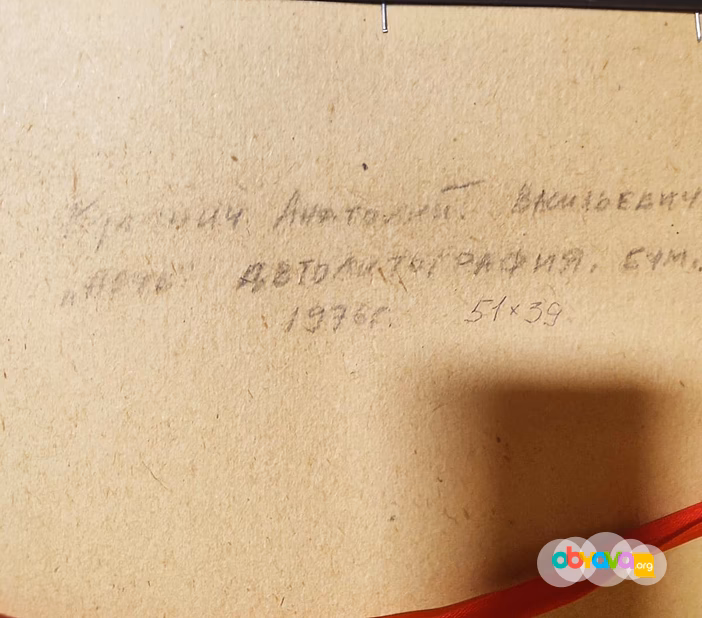 Анатолий Васильевич
автолитография, бум.
1976г. 51×39
obrava.org